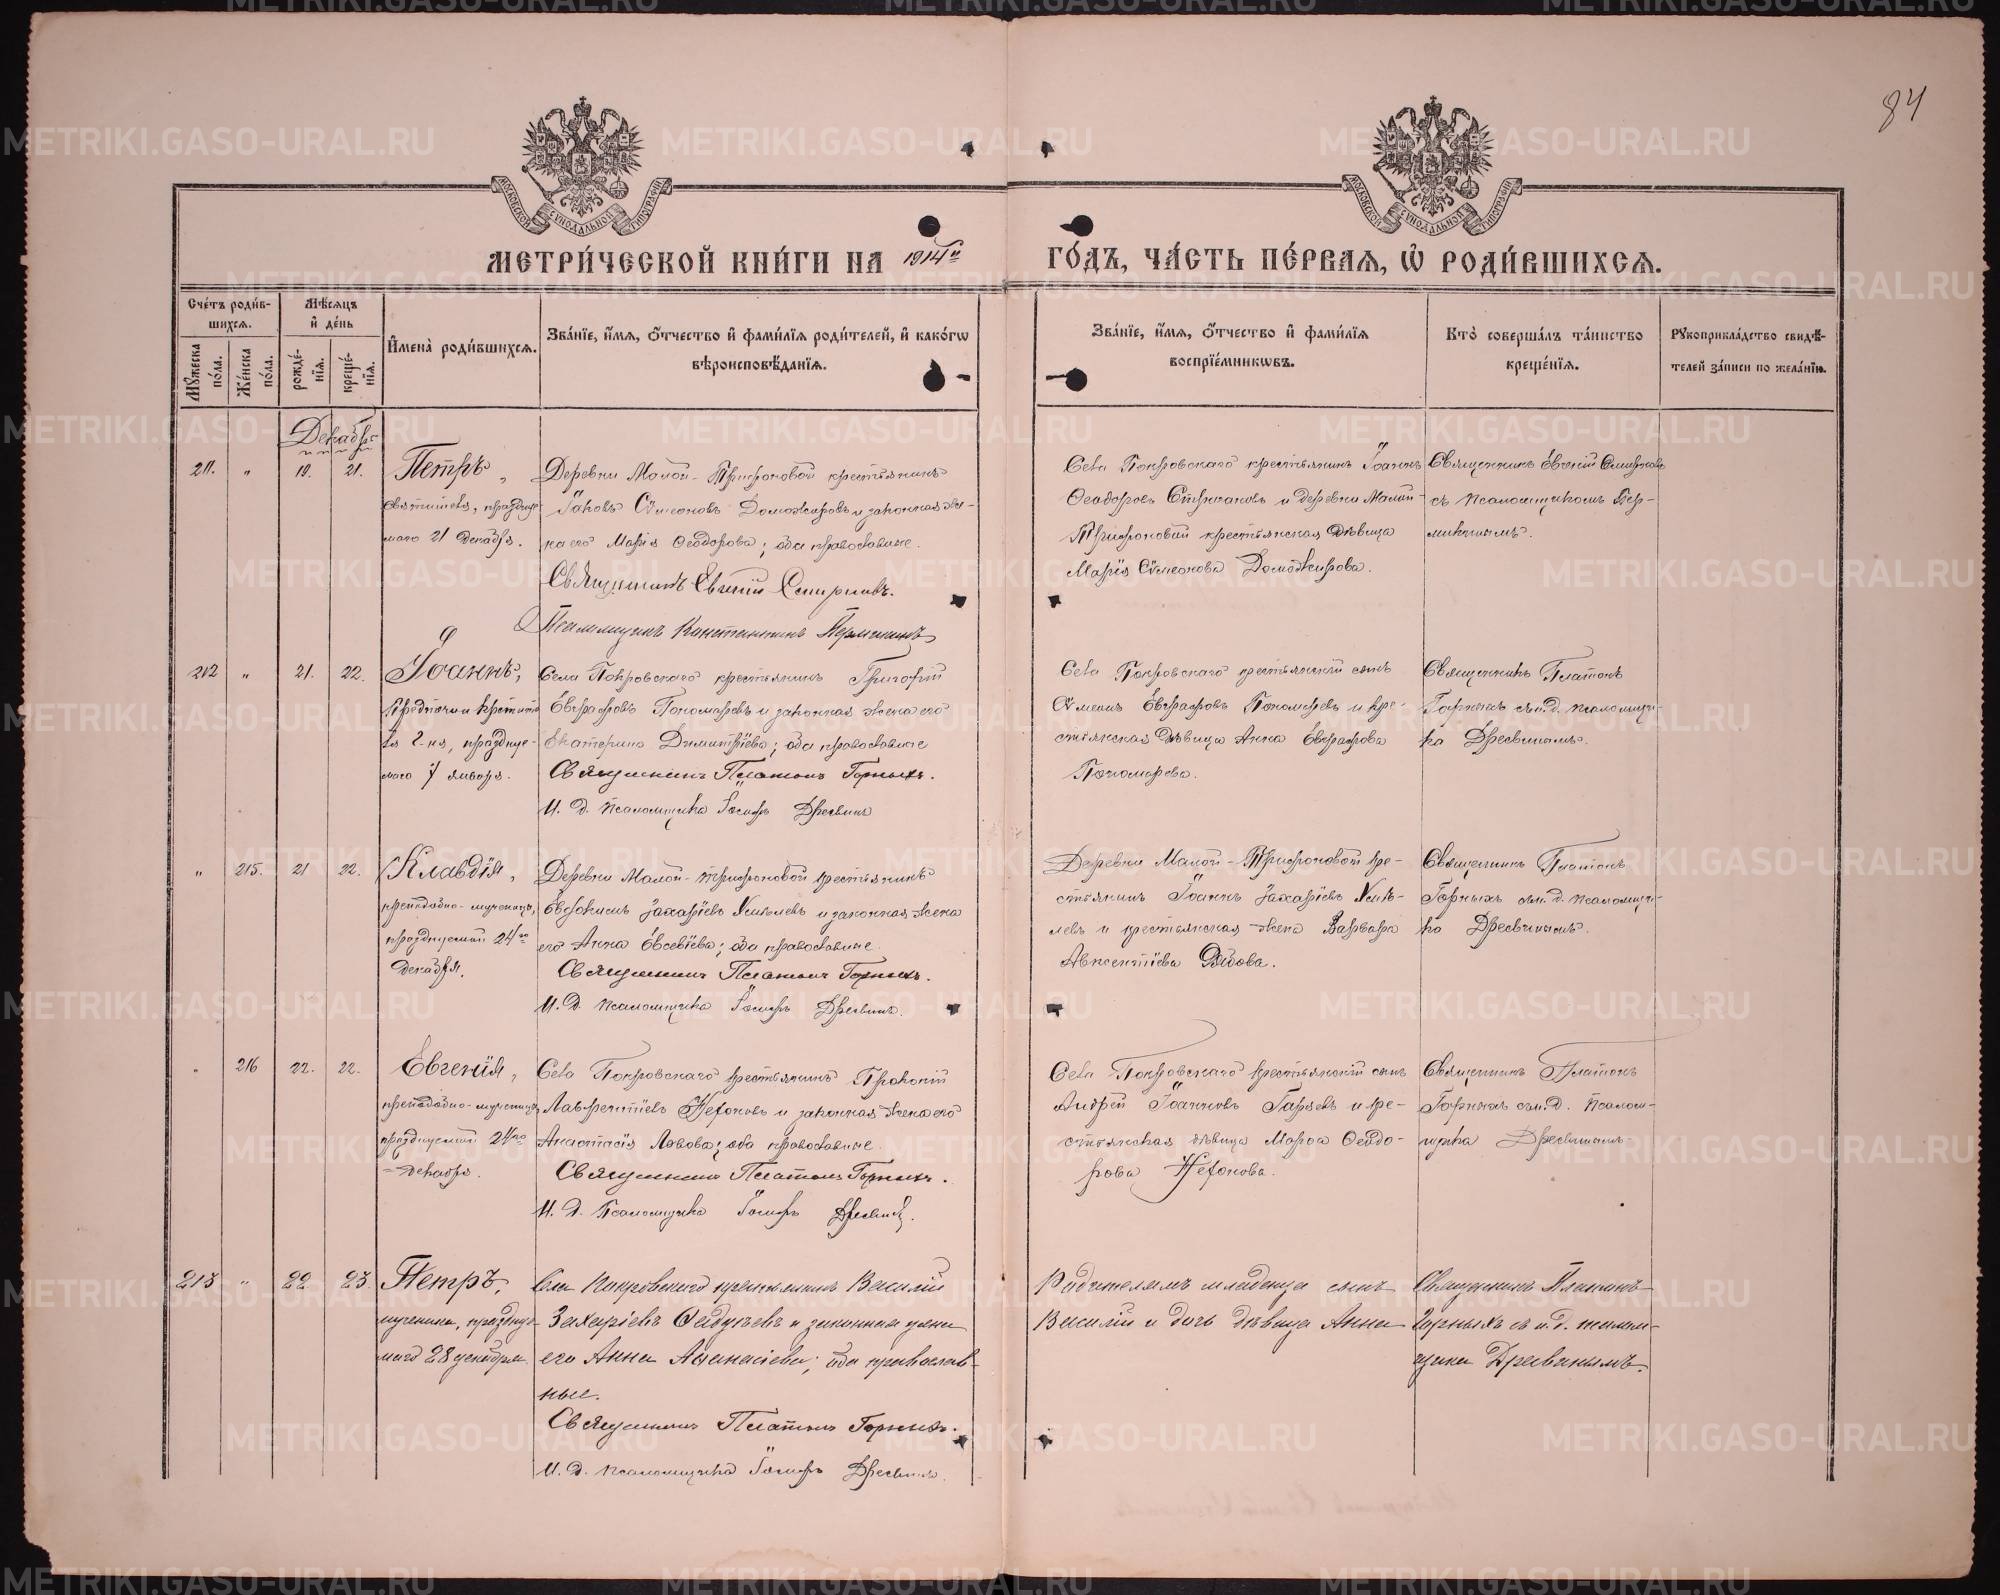 84
МОСКОВСКОЙ СѴНОДАЛЬНОЙ ТИПОГРАФІИ
МОСКОВСКОЙ СѴНОДАЛЬНОЙ ТИПОГРАФІИ
МЕТРИ́ЧЕСКОЙ КНИ́ГИ НА 1914й ГО́ДЪ, ЧА́СТЬ ПЕ́РВАЯ, Ѡ҆ РОДИ́ВШИХСЯ.
Сче́тъ роди́в-
шихся.
Мꙋжеска по́ла.
Же́нска по́ла.
Мѣ́сяцъ
и҆ де́нь
рожде́-
нїя.
креще́-
нїя.
И҆мена̀ роди́вшихся.
Зва́нїе, и҆́мя, ѻ҆́тчество и҆ фами́лїя роди́телей, и҆ како́гѡ
вѣроисповѣ́данїя.
Зва́нїе, и҆́мя, ѻ҆́тчество и҆ фами́лїя
воспрїе́мникѡвъ.
Кто̀ соверша́лъ та́инство
креще́нїя.
Рꙋкоприкла́дство свидѣ́-
телей за́писи по жела́нїю.
Декабрь
211. " 19. 21.
Петръ,
святителя, праздну-
маго 21 декабря.
Деревни Малой-Трифоновой крестьянинъ
Іаковъ Сѵмеоновъ Доможировъ и законная же-
на его Марія Ѳеодорова; оба православные.
Священникъ Евгеній Смирновъ.
Псаломщикъ Константинъ Пермикинъ
Села Покровскаго крестьянинъ Іоаннъ
Ѳеодоровъ Стригановъ и деревни Малой-
Трифоновой крестьянская дѣвица
Марія Сѵмеонова Доможирова.
Священникъ Евгеній Смирновъ
съ псаломщикомъ Пер-
микинымъ.
212 " 21. 22.
Іоаннъ,
Предтечи и Крестите-
ля Г-ня, праздну-
маго 7 января.
Села Покровскаго крестьянинъ Григорій
Евграфовъ Пономаревъ и законная жена его
Екатерина Димитріева; оба православные
Священникъ Платонъ Горныхъ.
И. д. псаломщика Іосифъ Дресвинъ
Села Покровскаго крестьянскій сынъ
Сѵмеонъ Евграфовъ Пономаревъ и кре-
стьянская дѣвица Анна Евграфова
Пономарева.
Священникъ Платонъ
Горныхъ съ и.д. псаломщи-
ка Дресвинымъ.
" 215. 21 22.
Клавдія,
преподобно-мученицы,
празднуемой 24го
декабря.
Деревни Малой-Трифоновой крестьянинъ
Евдокимъ Захаріевъ Хмѣлевъ и законная жена
его Анна Евсевіева; оба православные.
Священникъ Платонъ Горныхъ.
И. д. псаломщика Іосифъ Дресвинъ.
Деревни Малой-Трифоновой кре-
стьянинъ Іоаннъ Захаріевъ Хмѣ-
левъ и крестьянская жена Варвара
Авксентіева
Священникъ Платонъ
Горныхъ съ и.д. псаломщи-
ка Дресвинымъ.
" 216 22. 22.
Евгенія,
преподобно-мученицы,
празднуемой 24го
декабря.
Села Покровскаго крестьянинъ Прокопій
Лаврентіевъ и законная жена его
Анастасія Львова; оба православные.
Священникъ Платонъ Горныхъ.
И. д. Псаломщика Іосифъ Дресвинъ.
Села Покровскаго крестьянскій сынъ
Андрей Іоанновъ и кре-
стьянская дѣвица Марѳа Ѳеодо-
рова
Священникъ Платонъ
Горныхъ съ и.д. Псалом-
щика Дресвинымъ
213 " 22 23
Петръ,
мученика, праздну-
маго 28 декабря.
Села Покровскаго крестьянинъ Василій
Захаріевъ и законная жена
его Анна Аѳанасіева; оба православ-
ные.
Священникъ Платонъ Горныхъ.
И. д. псаломщика Іосифъ Дресвинъ.
Родителямъ младенца сынъ
Василій и дочь дѣвица Анна
Священникъ Платонъ
Горныхъ съ и.д. псалом-
щика Дресвинымъ.
METRIKI.GASO-URAL.RU